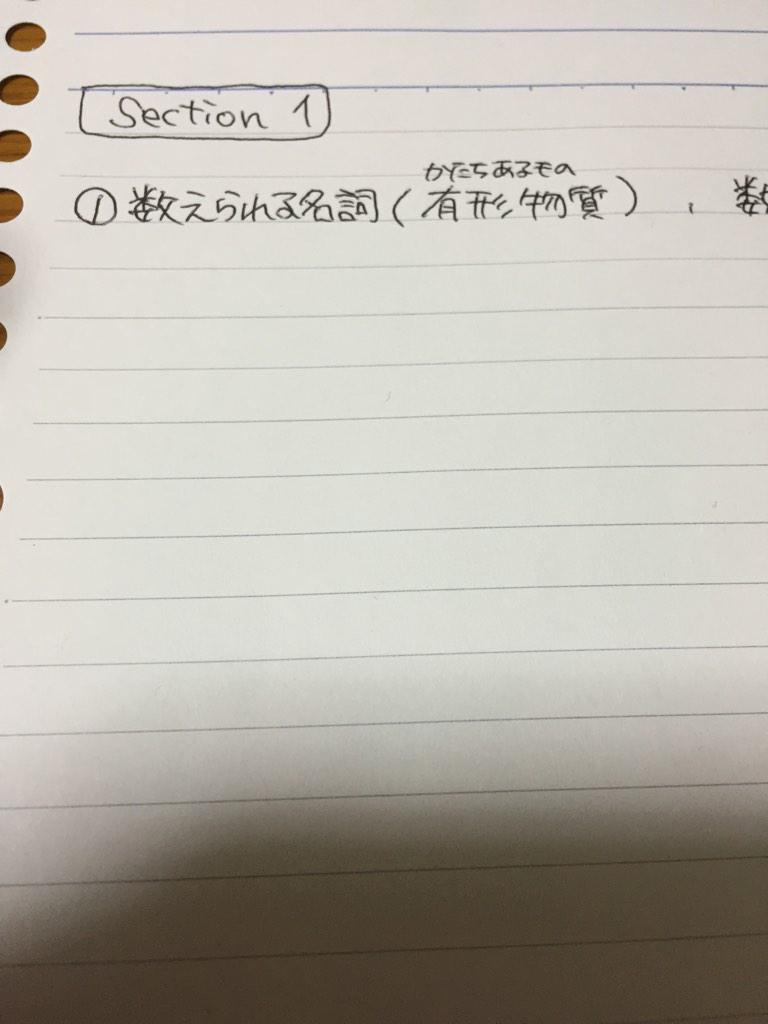 Section 1
かたちあるもの
① 数えられる名詞(有形物質)、数